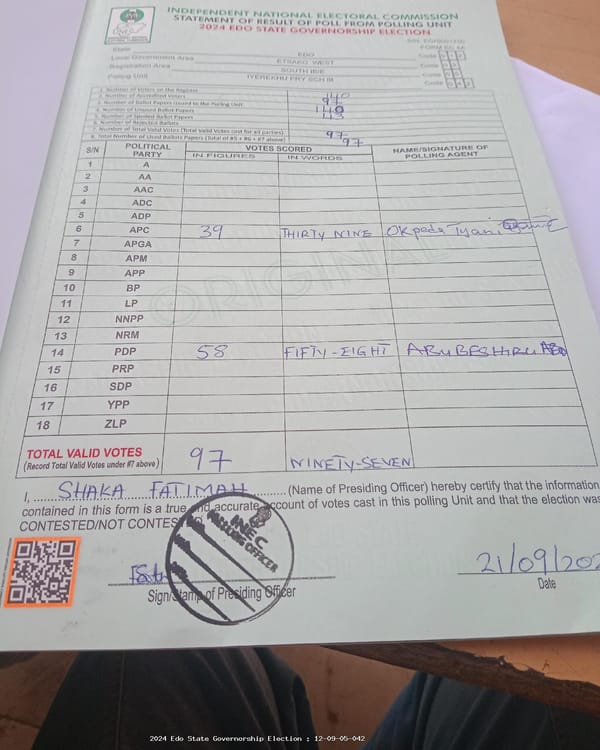 INDEPENDENT NATIONAL ELECTORAL COMMISSION
STATEMENT OF RESULT OF POLL FROM POLLING UNIT
2024 EDO STATE GOVERNORSHIP ELECTION
State EDO Code
Local Government Area ETSAKO WEST Code
Registration Area SOUTH IBIE Code
Polling Unit IYEREKHU PRY SCH III Code
1. Number of Voters on the Register
2. Number of Accredited Voters 97
3. Number of Ballot Papers Issued to the Polling Unit
4. Number of Unused Ballot Papers
5. Number of Spoiled Ballot Papers
6. Number of Rejected Ballots
7. Number of Total Valid Votes (Total Valid Votes cast for all parties) 97
8. Total Number of Used Ballots Papers (Total of #5 + #6 + #7 above) 97
S/N POLITICAL PARTY VOTES SCORED NAME/SIGNATURE OF POLLING AGENT
IN FIGURES IN WORDS
1 A
2 AA
3 AAC
4 ADC
5 ADP
6 APC 39 THIRTY NINE Okpeda
7 APGA
8 APM
9 APP
10 BP
11 LP
12 NNPP
13 NRM
14 PDP 58 FIFTY-EIGHT ABU BESHIRU
15 PRP
16 SDP
17 YPP
18 ZLP
ORIGINAL
TOTAL VALID VOTES 97 NINETY-SEVEN
(Record Total Valid Votes under #7 above)
I, SHAKA FATIMAH (Name of Presiding Officer) hereby certify that the information
contained in this form is a true and accurate account of votes cast in this polling Unit and that the election was
CONTESTED/NOT CONTES
INEC
PRESIDING OFFICER
21/09/202
Sign/Stamp of Presiding Officer Date
2024 Edo State Governorship Election : 12-09-05-042